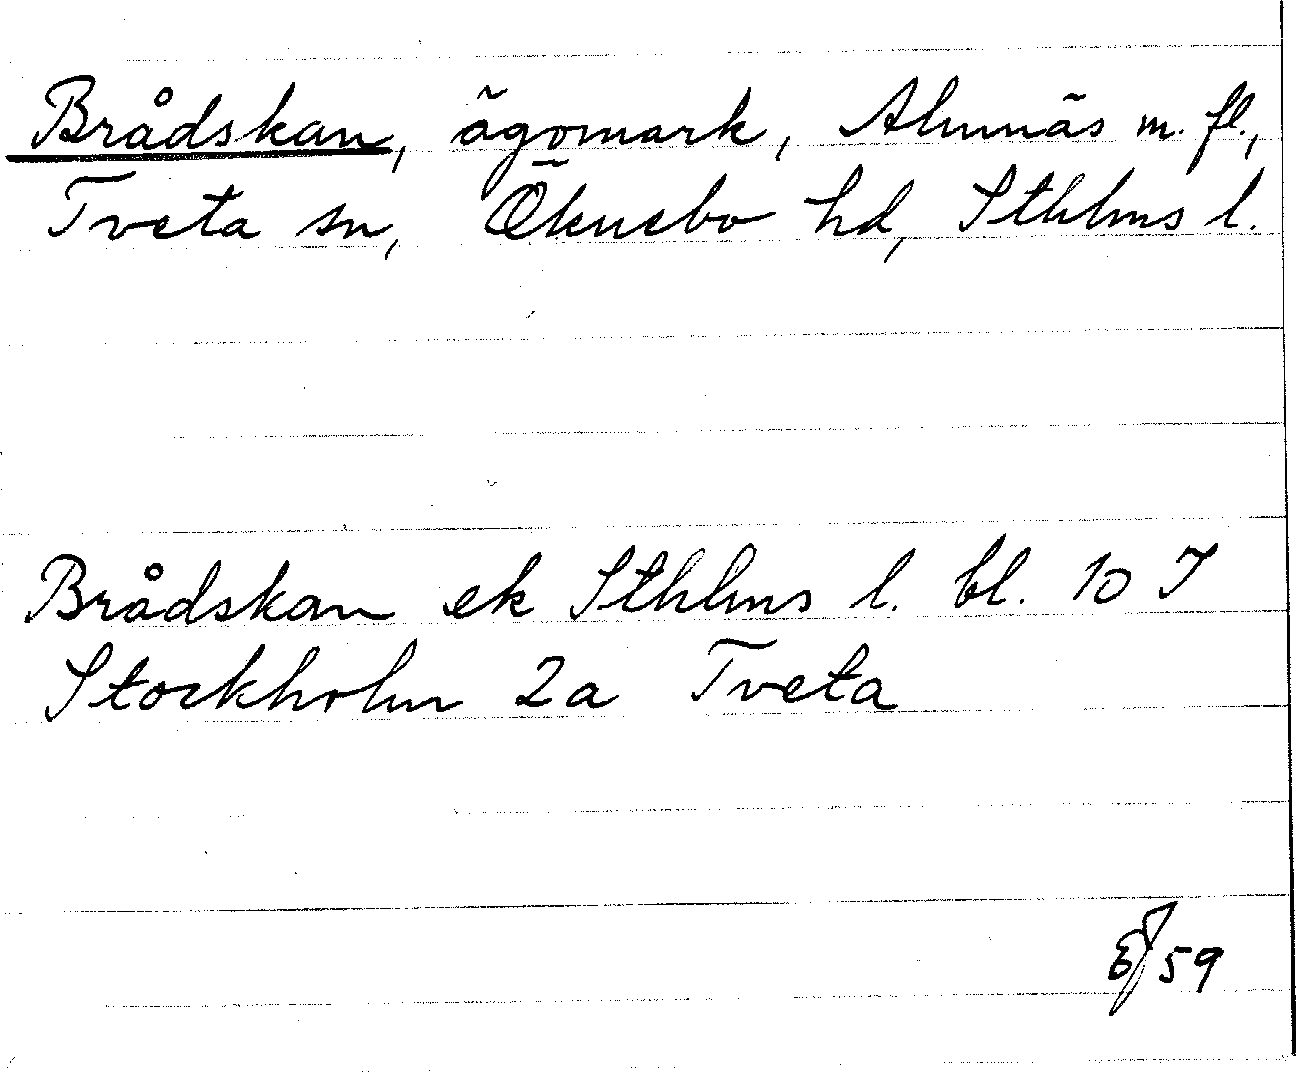 Brådskan, ägomark, Almnäs m. fl.,
Tveta sn, Öknebo hd, Sthlms l.
Brådskan ek Sthlms l. bl. 10 I
Stockholm 2a Tveta
59